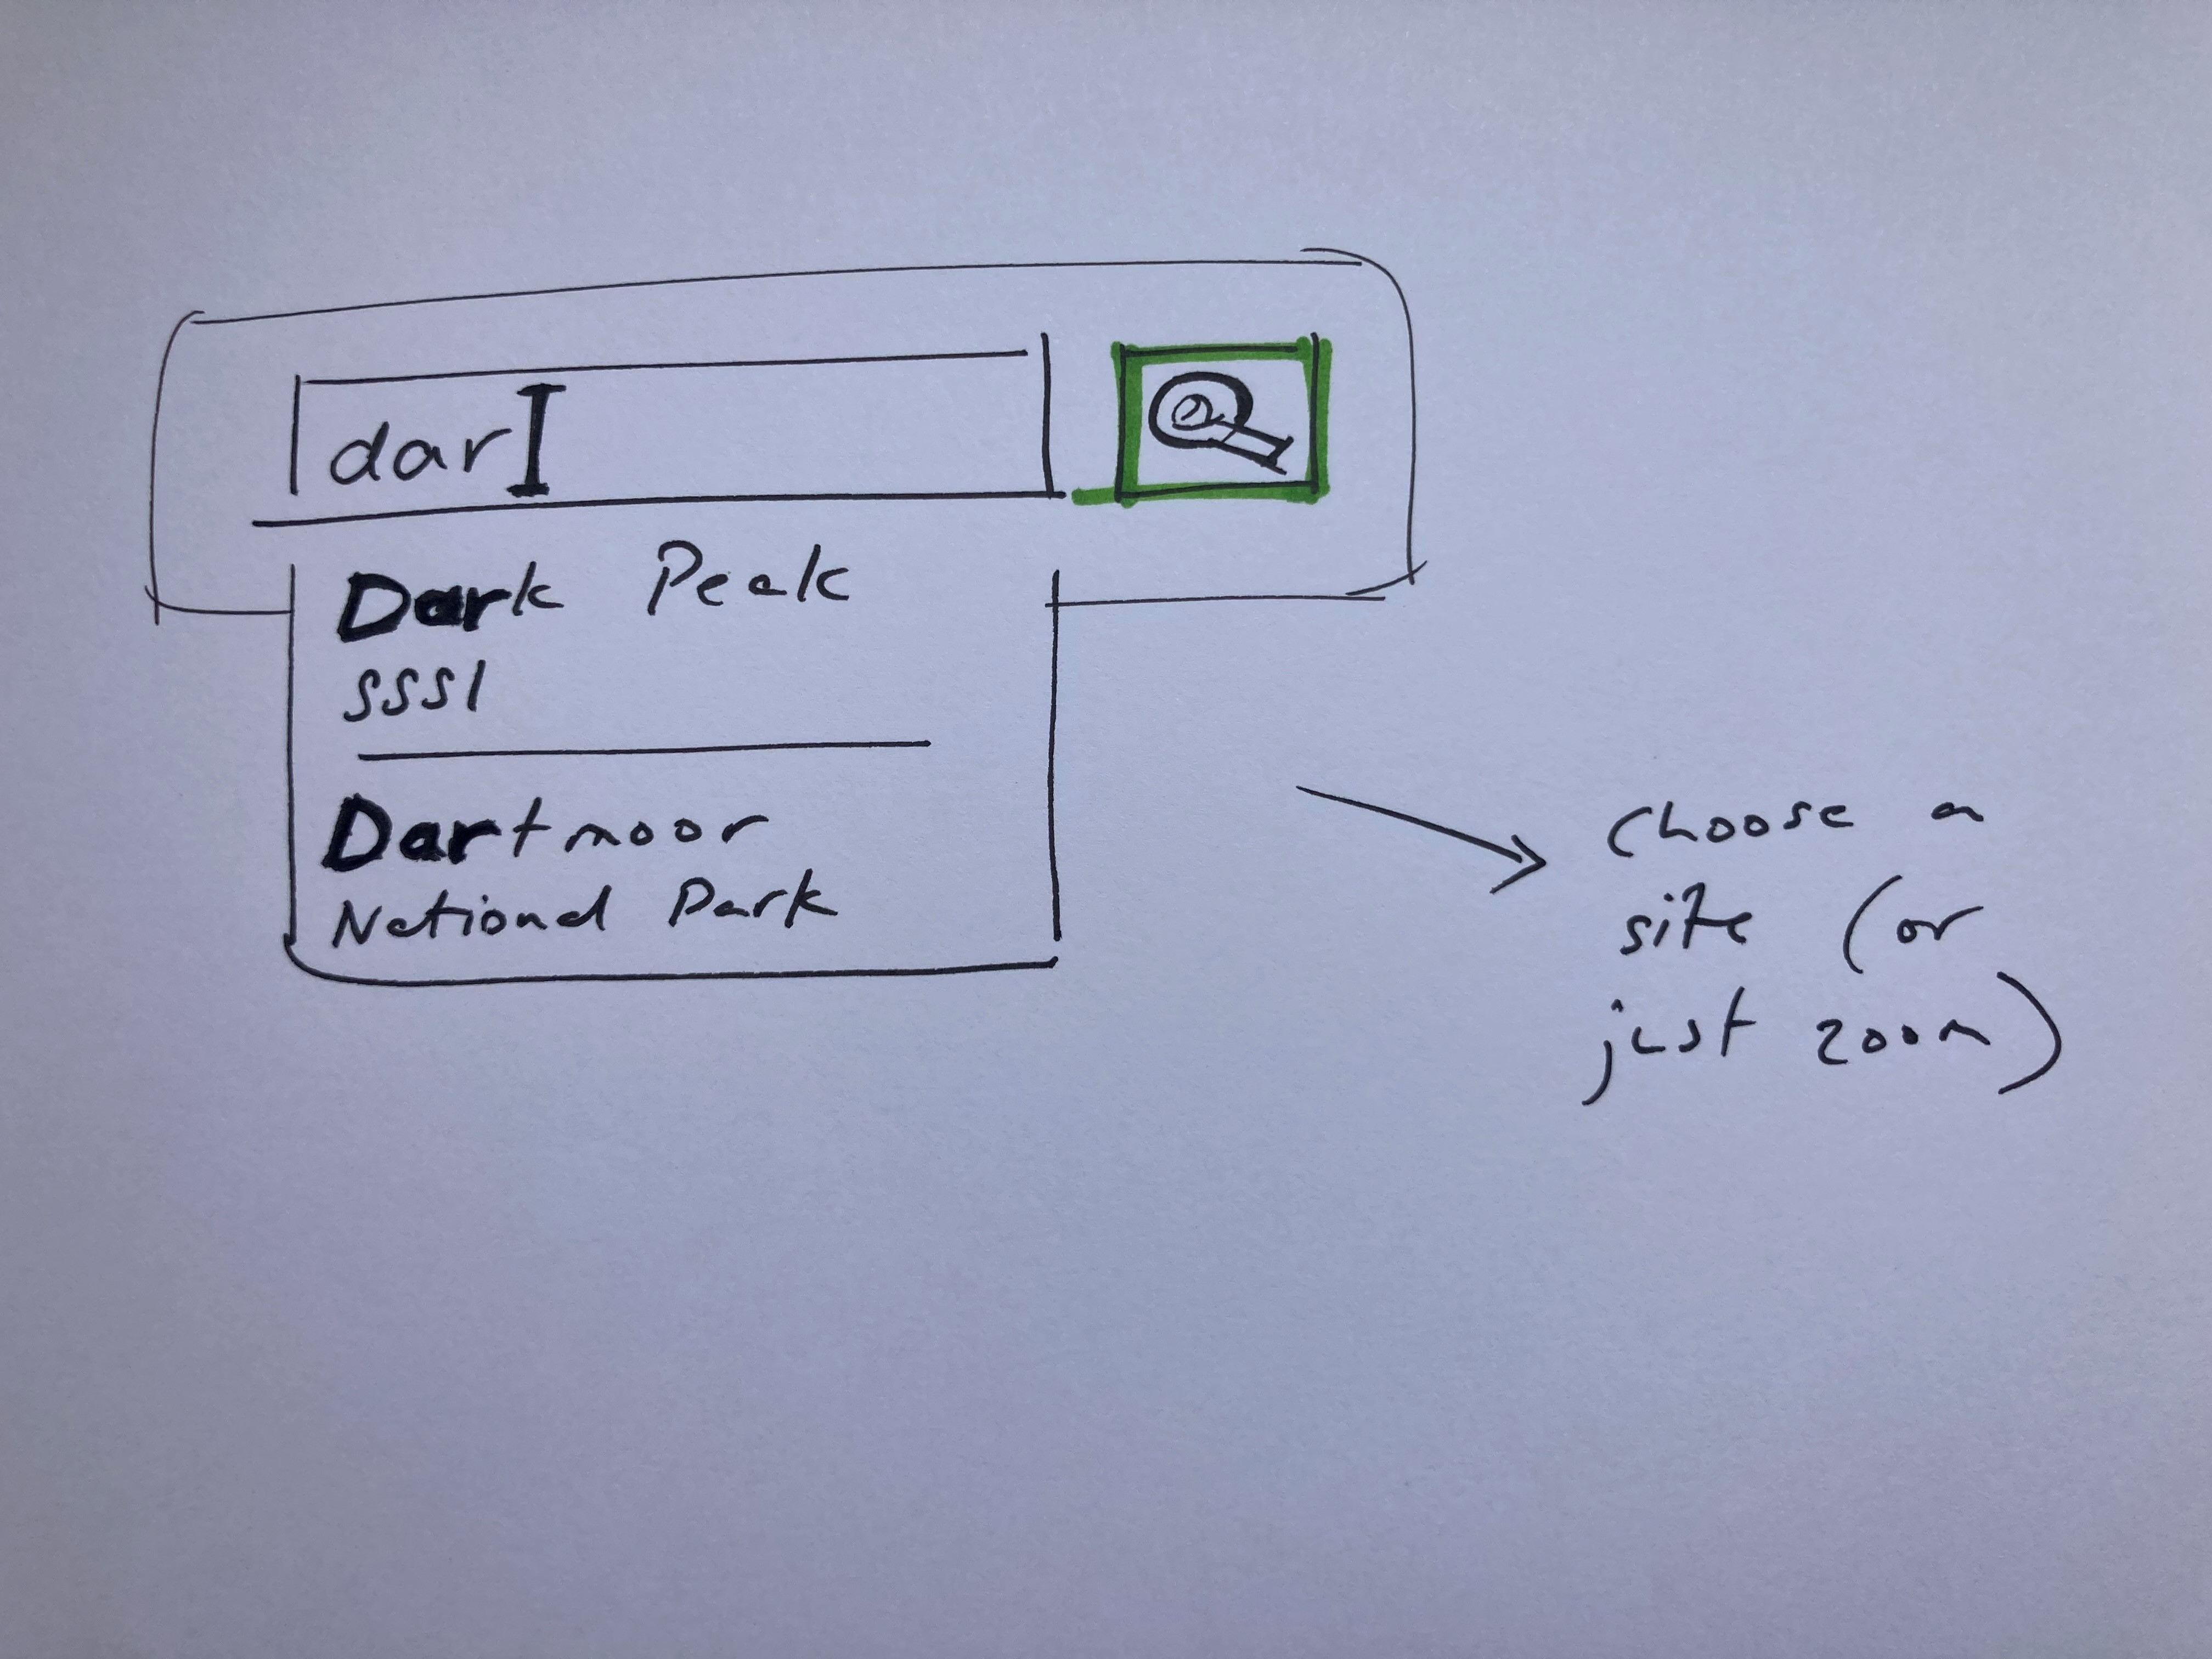 dar
Dark Peak
SSSI
Dartmoor
National Park
choose a
site (or
just zoom)